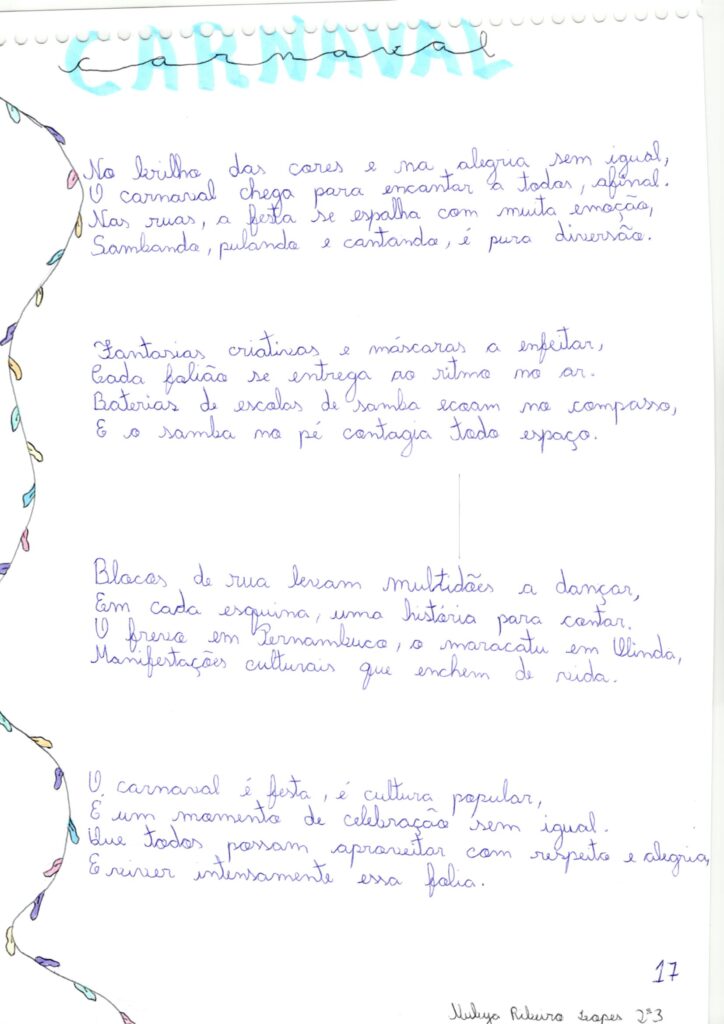 CARNAVAL
carnaval
No brilho das cores e na alegria sem igual,
O carnaval chega para encantar a todos, afinal.
Nas ruas, a festa se espalha com muita emoção,
Sambando, pulando e cantando, é pura diversão.
Fantasias criativas e máscaras a enfeitar,
Cada folião se entrega ao ritmo no ar.
Baterias de escolas de samba ecoam no compasso,
E o samba no pé contagia todo espaço.
Blocos de rua levam multidões a dançar,
Em cada esquina, uma história para contar.
O frevo em Pernambuco, o maracatu em Olinda,
Manifestações culturais que enchem de vida.
O carnaval é festa, é cultura popular,
É um momento de celebração sem igual.
Que todos possam aproveitar com respeito e alegria,
E viver intensamente essa folia.
17
Ribeiro Lopes 2ª3